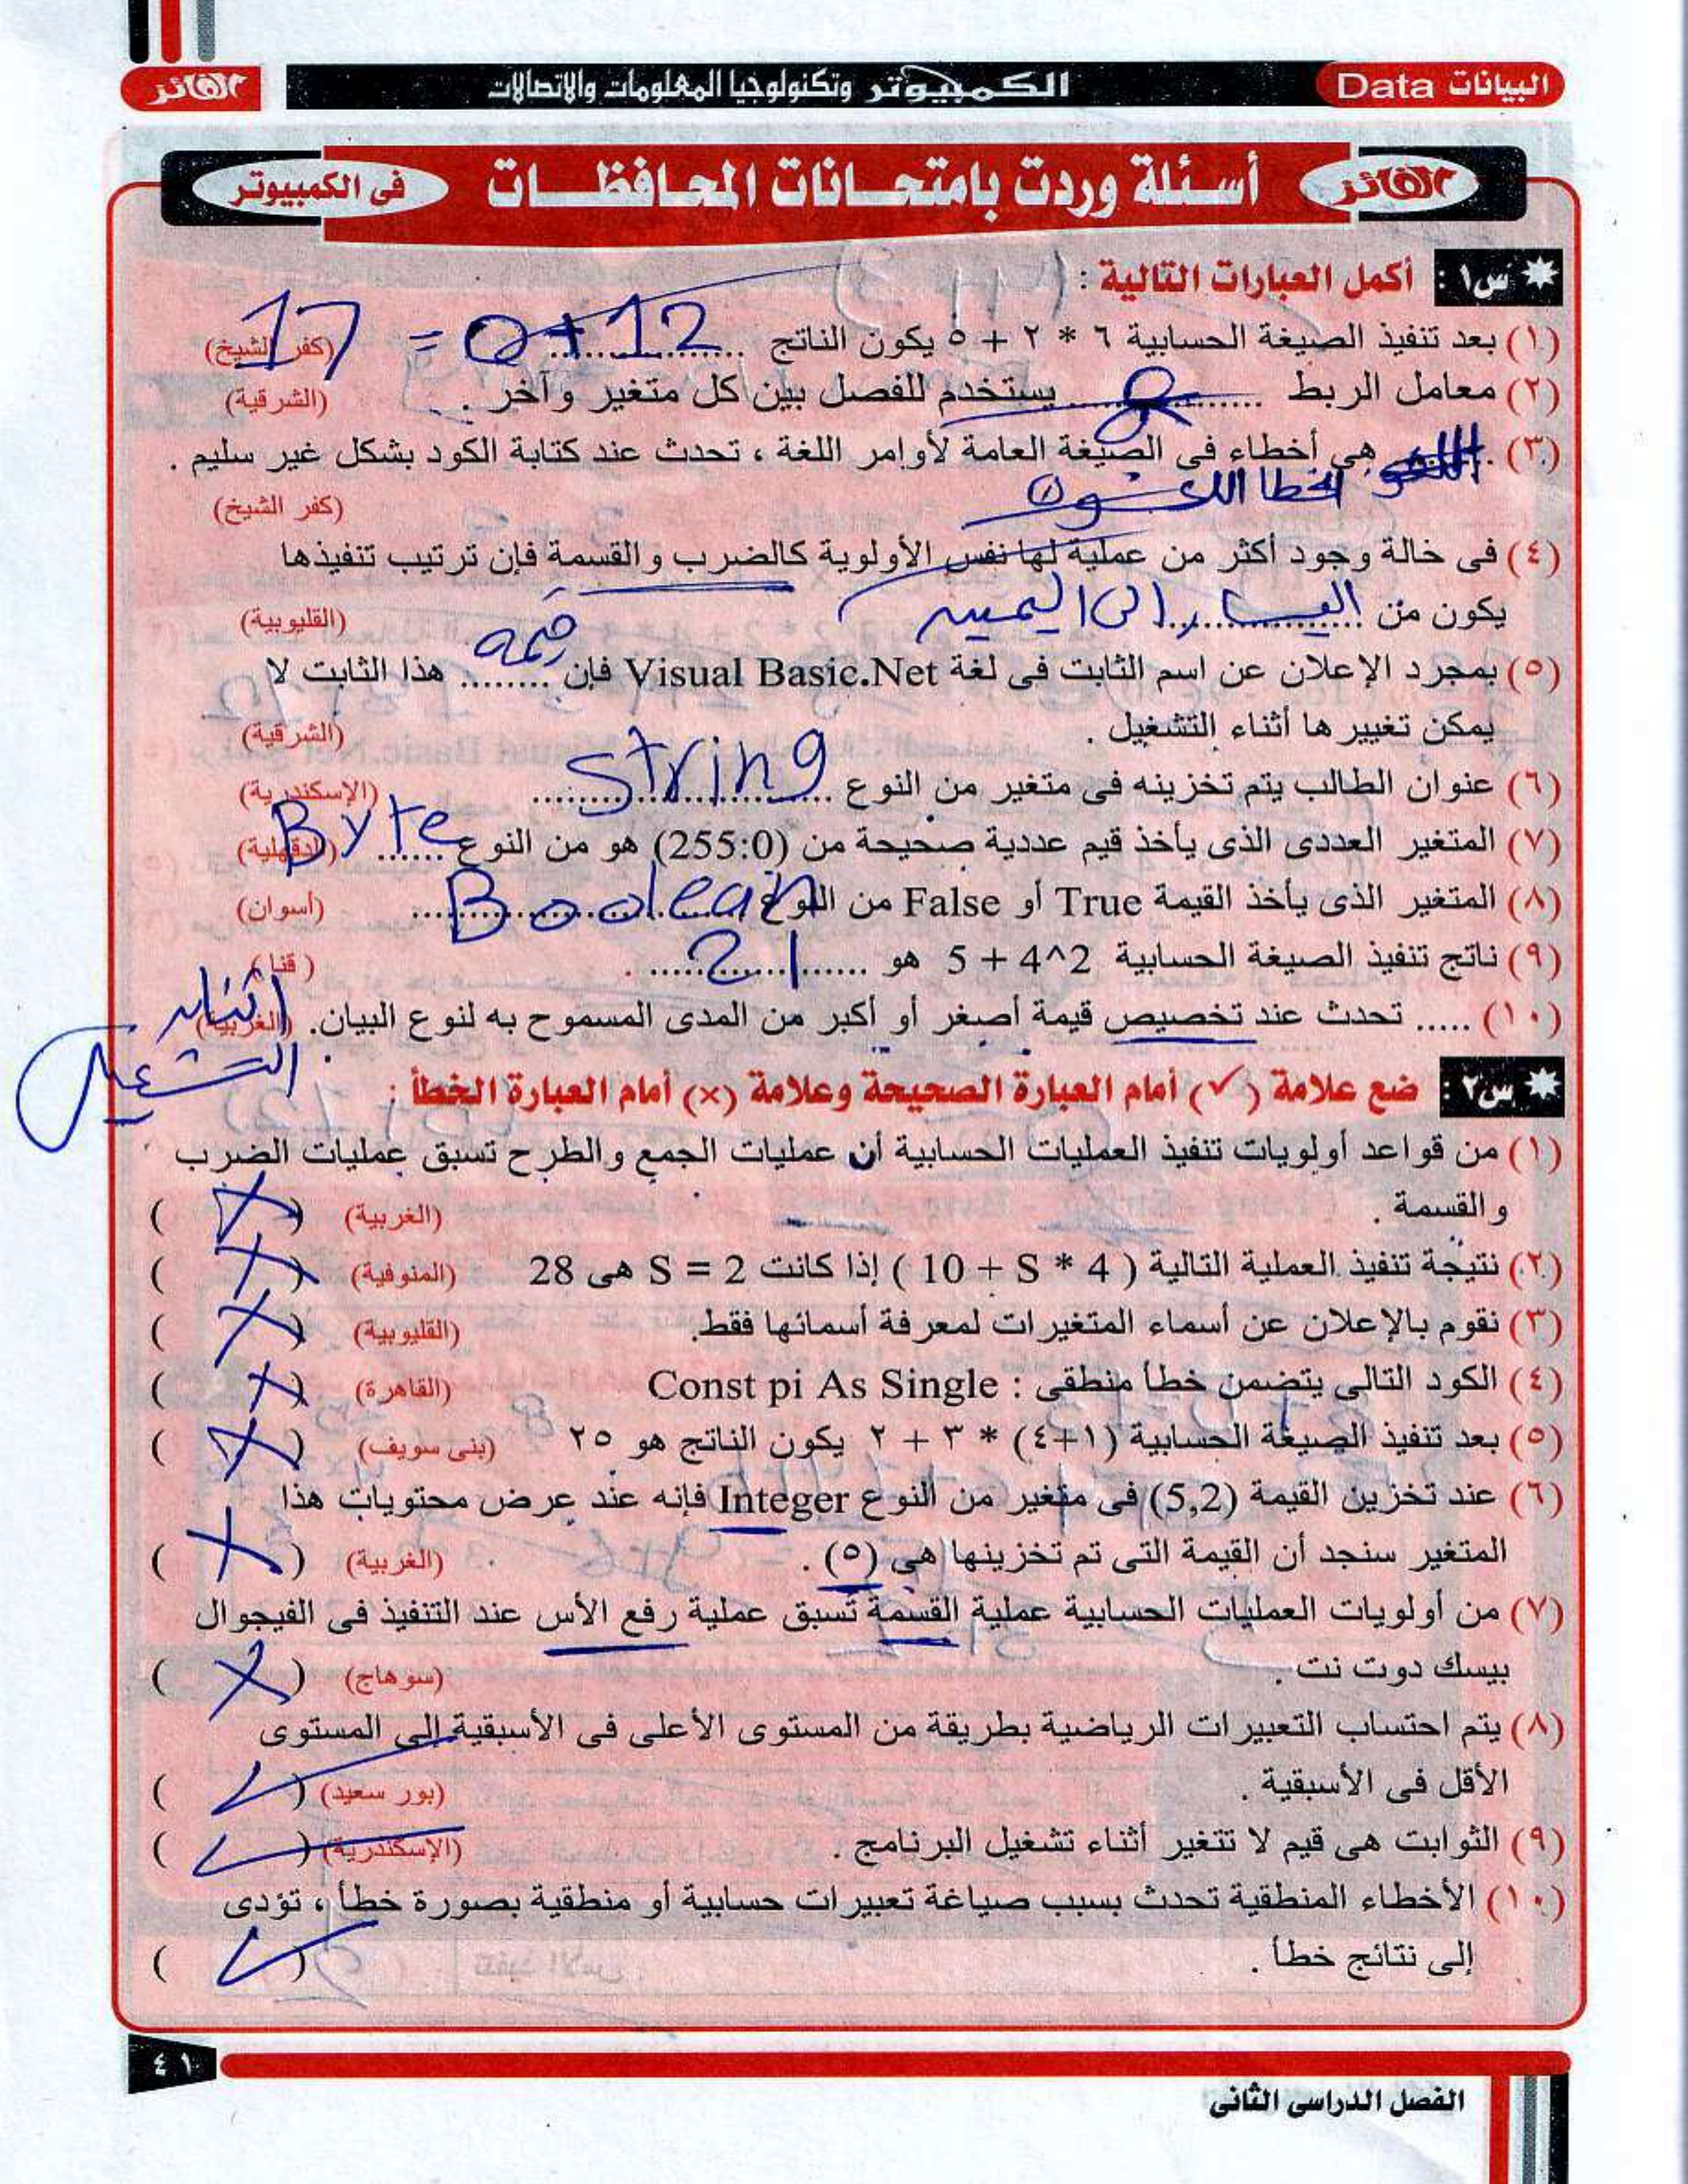 البيانات Data
الكمبيوتر وتكنولوجيا المعلومات والاتصالات
الفائز
الفائز
أسئلة وردت بامتحانات المحافظات
فى الكمبيوتر
س١ : أكمل العبارات التالية :
(١) بعد تنفيذ الصيغة الحسابية ٦ * ٢ + ٥ يكون الناتج .......... 5+12 = 17 (كفر الشيخ)
(٢) معامل الربط .......... & .......... يستخدم للفصل بين كل متغير وآخر . (الشرقية)
(٣) ........ هى أخطاء فى الصيغة العامة لأوامر اللغة ، تحدث عند كتابة الكود بشكل غير سليم .
(كفر الشيخ)
(٤) فى خالة وجود أكثر من عملية لها نفس الأولوية كالضرب والقسمة فإن ترتيب تنفيذها
يكون من .......... اليسار الى اليمين (القليوبية)
(٥) بمجرد الإعلان عن اسم الثابت فى لغة Visual Basic.Net فإن ........ قيمة هذا الثابت لا
يمكن تغييرها أثناء التشغيل . (الشرقية)
(٦) عنوان الطالب يتم تخزينه فى متغير من النوع .......... string (الإسكندرية)
(٧) المتغير العددى الذى يأخذ قيم عددية صحيحة من (255:0) هو من النوع ...... Byte (الدقهلية)
(٨) المتغير الذى يأخذ القيمة True أو False من النوع .......... Boolean (أسوان)
(٩) ناتج تنفيذ الصيغة الحسابية 5 + 4^2 هو .......... 21 . (قنا)
(١٠) ..... تحدث عند تخصيص قيمة أصغر أو أكبر من المدى المسموح به لنوع البيان. (الغربية) اثناء
التشغيل
س٢ : ضع علامة (✓) أمام العبارة الصحيحة وعلامة (×) أمام العبارة الخطأ :
(١) من قواعد أولويات تنفيذ العمليات الحسابية أن عمليات الجمع والطرح تسبق عمليات الضرب
والقسمة . (الغربية) ( × )
(٢) نتيجة تنفيذ العملية التالية ( 10 + S * 4 ) إذا كانت S = 2 هى 28 (المنوفية) ( × )
(٣) نقوم بالإعلان عن أسماء المتغيرات لمعرفة أسمائها فقط. (القليوبية) ( × )
(٤) الكود التالى يتضمن خطأ منطقى : Const pi As Single (القاهرة) ( × )
(٥) بعد تنفيذ الصيغة الحسابية (١+٤) * ٣ + ٢ يكون الناتج هو ٢٥ (بنى سويف) ( × )
(٦) عند تخزين القيمة (5,2) فى متغير من النوع Integer فإنه عند عرض محتويات هذا
المتغير سنجد أن القيمة التى تم تخزينها هى (٥) . (الغربية) ( × )
(٧) من أولويات العمليات الحسابية عملية القسمة تسبق عملية رفع الأس عند التنفيذ فى الفيجوال
بيسك دوت نت . (سوهاج) ( × )
(٨) يتم احتساب التعبيرات الرياضية بطريقة من المستوى الأعلى فى الأسبقية إلى المستوى
الأقل فى الأسبقية . (بور سعيد) ( ✓ )
(٩) الثوابت هى قيم لا تتغير أثناء تشغيل البرنامج . (الإسكندرية) ( ✓ )
(١٠) الأخطاء المنطقية تحدث بسبب صياغة تعبيرات حسابية أو منطقية بصورة خطأ ، تؤدى
إلى نتائج خطأ . ( ✓ )
٤١
الفصل الدراسى الثانى